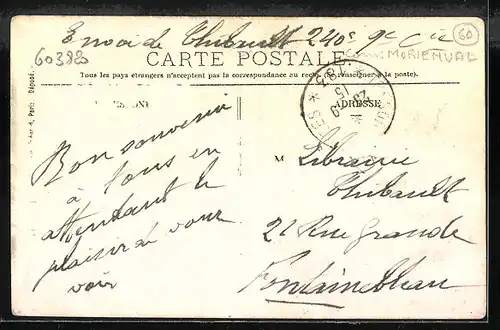 Envoi de Thibault 240e 9e Cie
60
60393
CARTE POSTALE
MORIENVAL
Tous les pays étrangers n'acceptent pas la correspondance au recto. (Se renseigner à la poste).
ADRESSE
Bon souvenir
à tous en
attendant le
plaisir de vous
voir
M Librairie
Thibault
21 Rue Grande
Fontainebleau